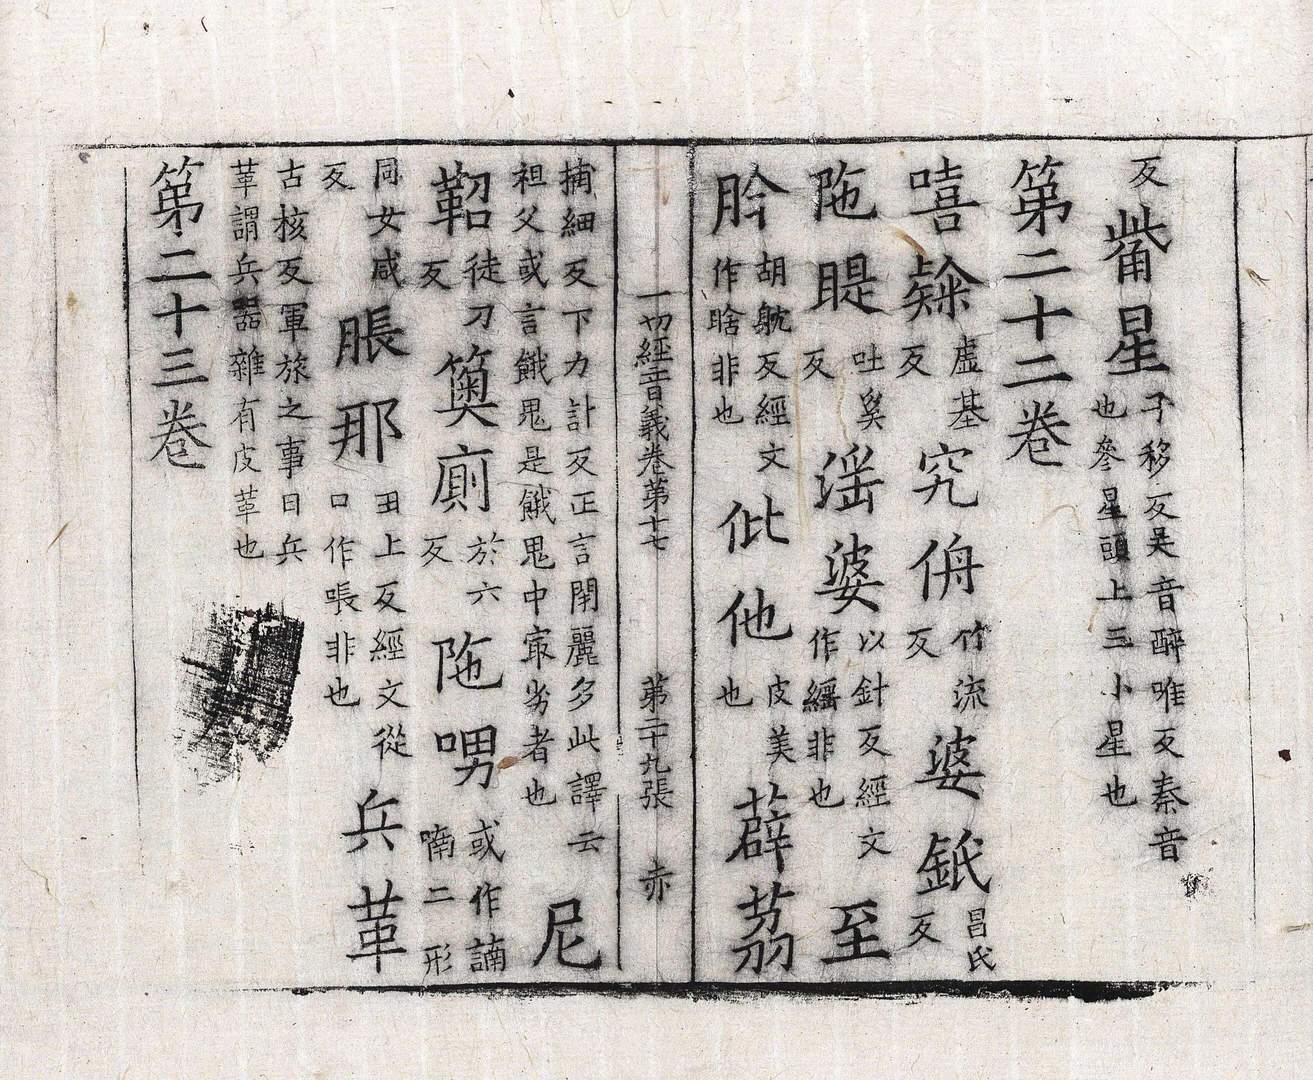 反 觜星 子移反吴音醉唯反秦音也參星頭上三小星也
第二十二卷
嘻 虛基反 究侜 竹流反 婆 昌氏反
陁睼 吐奚反 婬婆 以針反經文作纆非也 至
肣 胡躭反經文作晗非也 仳他 皮美也 薜荔
一切經音義卷第十七 第二十九張 赤
捕細反下力計反正言閉麗多此譯云祖父或言餓鬼是餓鬼中㝡劣者也 尼
鞀 徒刀反 薁廁 於六反 陁喟 或作諵喃二形
同女咸反 脹那 丑上反經文從口作唴非也 兵革
古核反軍旅之事曰兵革謂兵器雜有皮革也
第二十三卷